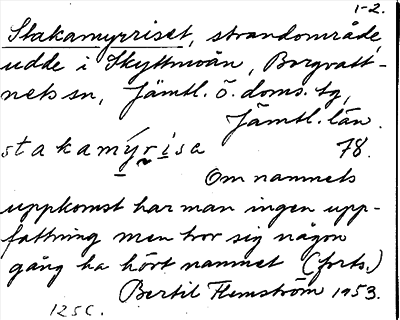 1-2.
Stakamyrriset, strandområde,
udde i Skyttmoån, Borgvatt-
nets sn, Jämtl. ö. doms. tg,
Jämtl. län.
stakamýrisa 78.
Om namnets
uppkomst har man ingen upp-
fattning men tror sig någon
gång ha hört namnet (forts.)
Bertil Flemström 1953.
125C.